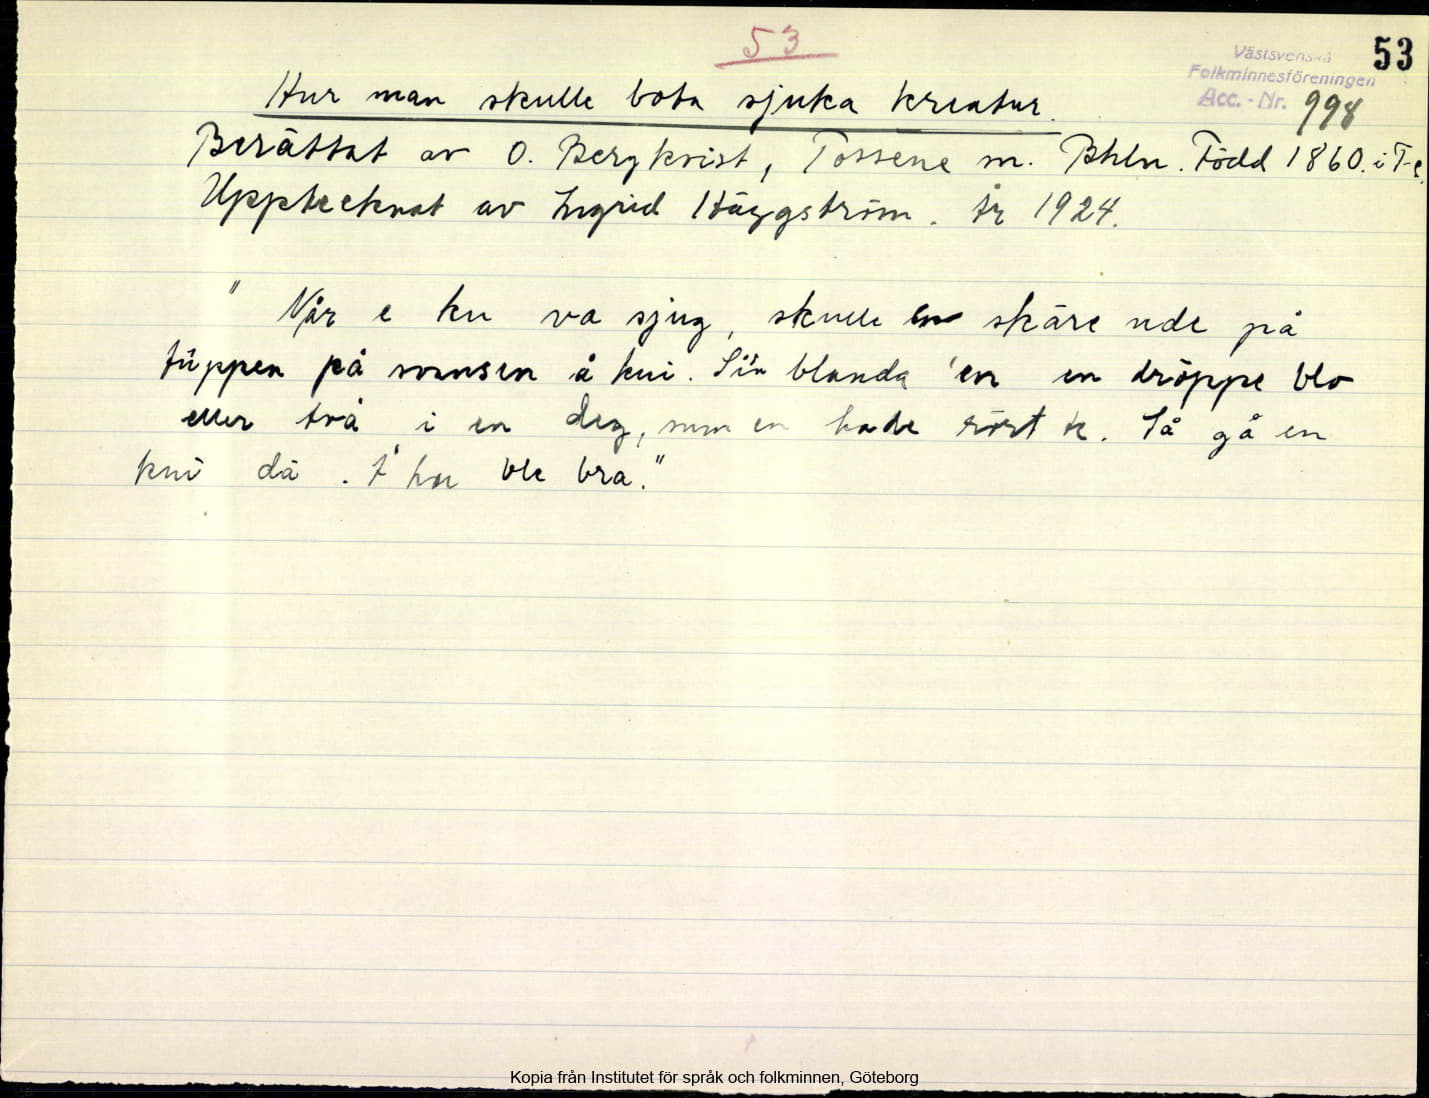 53
53
Västsvenska
Folkminnesföreningen
Acc.-Nr. 998
Hur man skulle bota sjuka kreatur.
Berättat av O. Bergkvist, Tossene sn. Bhln. Född 1860. i T-e.
Upptecknat av Ingrid Häggström. År 1924.
" Når e ku va sjug, skulle en skäre ude på
tüppen på svansen å kui. Si'n blanda 'en en dröppe blo
eller två i en deg, sum en hade rört te. Så gå en
kui dä. Å hu ble bra."
Kopia från Institutet för språk och folkminnen, Göteborg